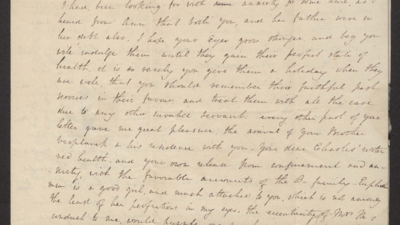 I had been looking for with some anxiety for some time as I
heard from Ann that both you, and his father were in
his debt also. I hope your Eyes grow stronger and beg you
will indulge them until they gain their perfect state of
health, it is so rarely you give them a holiday when they
are well, that you should remember their faithful past
services in their favour, and treat them with all the care
due to any other favorite Servant. every other part of your
letter gave me great pleasure, the account of your Brother
his residence with you, your dear Charles'
health, and your own release from confinement and an-
xiety, with the favorable accounts of the B. family.
is a good girl, and much attached to you, which is not among
the least of her perfections in my eyes, the uncertainty of Mrs
conduct to me, would